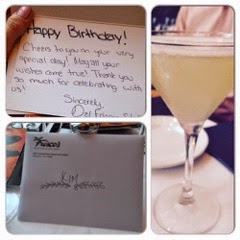 Happy Birthday!
Cheers to you on your very
special day! May all your
wishes come true! Thank you
so much for celebrating with
us!
Sincerely,
KIM